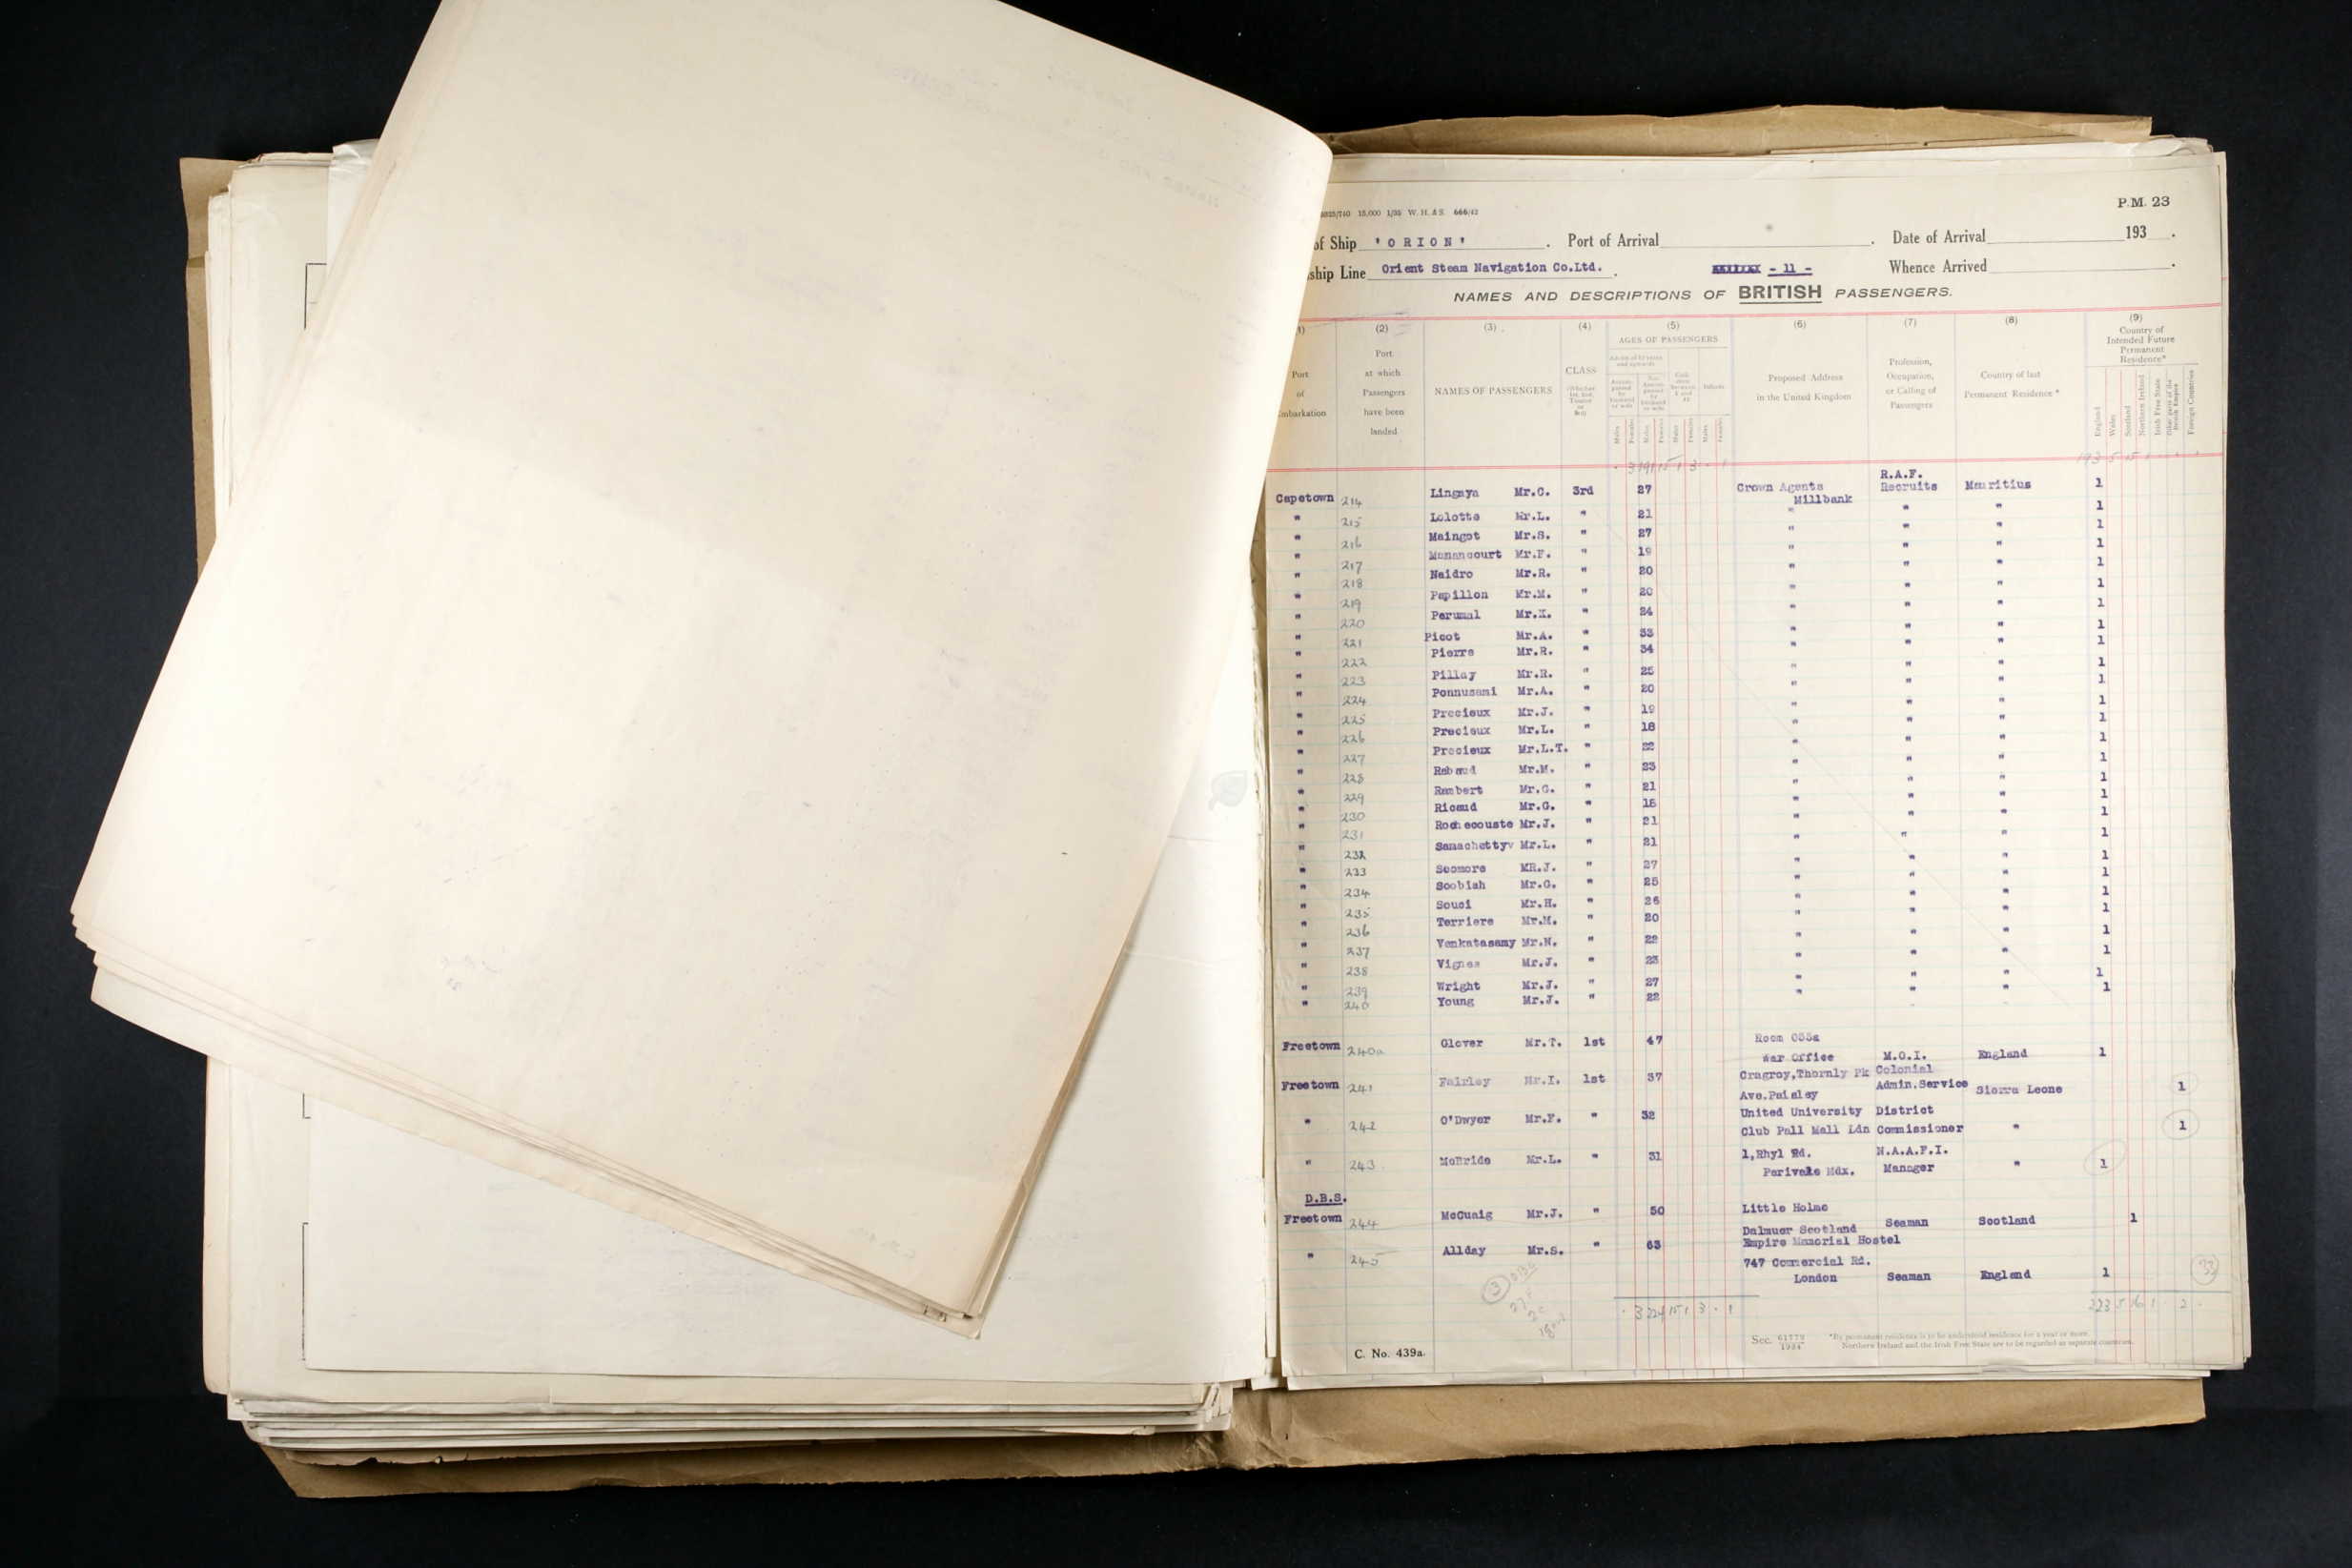 6925/740 15,000 1/35 W. H. & S. 666/42
P.M. 23
of Ship 'ORION' . Port of Arrival . Date of Arrival 193 .
ship Line Orient Steam Navigation Co.Ltd. . - 11 - Whence Arrived .
NAMES AND DESCRIPTIONS OF BRITISH PASSENGERS.
(1) (2) (3) (4) (5) (6) (7) (8) (9)
Port of Embarkation
Port at which Passengers have been landed
NAMES OF PASSENGERS
CLASS
(Whether 1st 2nd Tourist or 3rd)
AGES OF PASSENGERS
Adults of 12 years and upwards
Accompanied by husband or wife
Not Accompanied by husband or wife
Children between 1 and 12
Infants
Males Females Males Females Males Females Males Females
Proposed Address in the United Kingdom
Profession, Occupation, or Calling of Passengers
Country of last Permanent Residence *
Country of Intended Future Permanent Residence*
England Wales Scotland Northern Ireland Irish Free State Other parts of the British Empire Foreign Countries
Capetown 214 Lingaya Mr.C. 3rd 27 Crown Agents Millbank R.A.F. Recruits Mauritius 1
" 215 Lolotte Mr.L. " 21 " " " 1
" 216 Maingot Mr.S. " 27 " " " 1
" 217 Manancourt Mr.F. " 19 " " " 1
" 218 Naidro Mr.R. " 20 " " " 1
" 219 Papillon Mr.M. " 20 " " " 1
" 220 Perumal Mr.K. " 24 " " " 1
" 221 Picot Mr.A. " 33 " " " 1
" 222 Pierre Mr.R. " 34 " " " 1
" 223 Pillay Mr.R. " 25 " " " 1
" 224 Ponnusami Mr.A. " 20 " " " 1
" 225 Precieux Mr.J. " 19 " " " 1
" 226 Precieux Mr.L. " 18 " " " 1
" 227 Precieux Mr.L.T. " 22 " " " 1
" 228 Rabaud Mr.M. " 23 " " " 1
" 229 Rambert Mr.G. " 21 " " " 1
" 230 Ricaud Mr.G. " 18 " " " 1
" 231 Rochecouste Mr.J. " 21 " " " 1
" 232 Samachettyv Mr.L. " 21 " " " 1
" 233 Seomore MR.J. " 27 " " " 1
" 234 Soobiah Mr.G. " 25 " " " 1
" 235 Souci Mr.H. " 26 " " " 1
" 236 Terriere Mr.M. " 20 " " " 1
" 237 Venkatasamy Mr.N. " 22 " " " 1
" 238 Vignes Mr.J. " 23 " " " 1
" 239 Wright Mr.J. " 27 " " " 1
" 240 Young Mr.J. " 22 " " " 1
Freetown 240a Glover Mr.T. 1st 47 Room 055a
War Office M.O.I. England 1
Freetown 241 Fairley Mr.I. 1st 37 Cragroy,Thornly Pk Colonial
Ave.Paisley Admin.Service Sierra Leone 1
" 242 O'Dwyer Mr.F. " 32 United University District
Club Pall Mall Ldn Commissioner " 1
" 243 McBride Mr.L. " 31 1,Rhyl Rd. N.A.A.F.I.
Perivale Mdx. Manager " 1
D.B.S.
Freetown 244 McCuaig Mr.J. " 50 Little Holme
Dalmuer Scotland Seaman Scotland 1
" 245 Allday Mr.S. " 63 Empire Memorial Hostel
747 Commercial Rd.
London Seaman England 1
33
3 224 15 1 3 - 1
223 5 16 1 2 -
C. No. 439a.
Sec. 61778 1934
*By permanent residence is to be understood residence for a year or more.
Northern Ireland and the Irish Free State are to be regarded as separate countries.